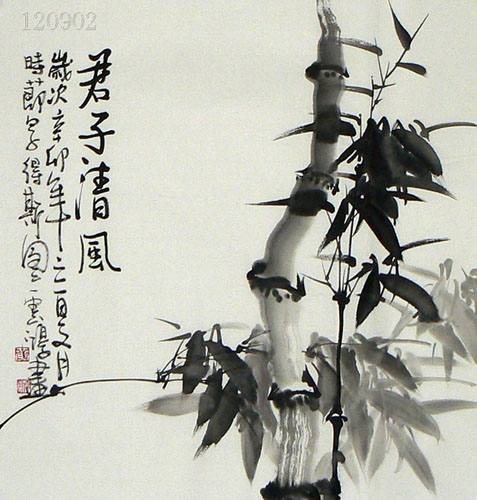 120902
君子清風
歲次辛卯年月
時節得斯圖雲鴻畫